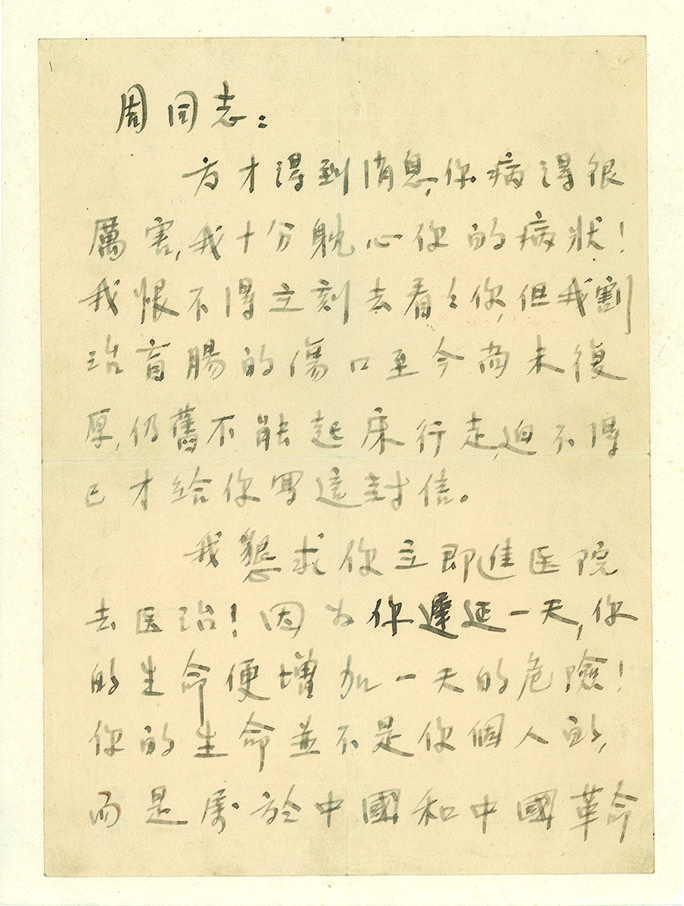 周同志：
方才得到消息，你病得很
厲害，我十分躭心你的病狀！
我恨不得立刻去看々你，但我割
治盲腸的傷口至今尚未復
原，仍舊不能起床行走，迫不得
已才給你写這封信。
我懇求你立即進医院
去医治！因为你遲延一天，你
的生命便增加一天的危險！
你的生命並不是你個人的，
而是属於中國和中國革命